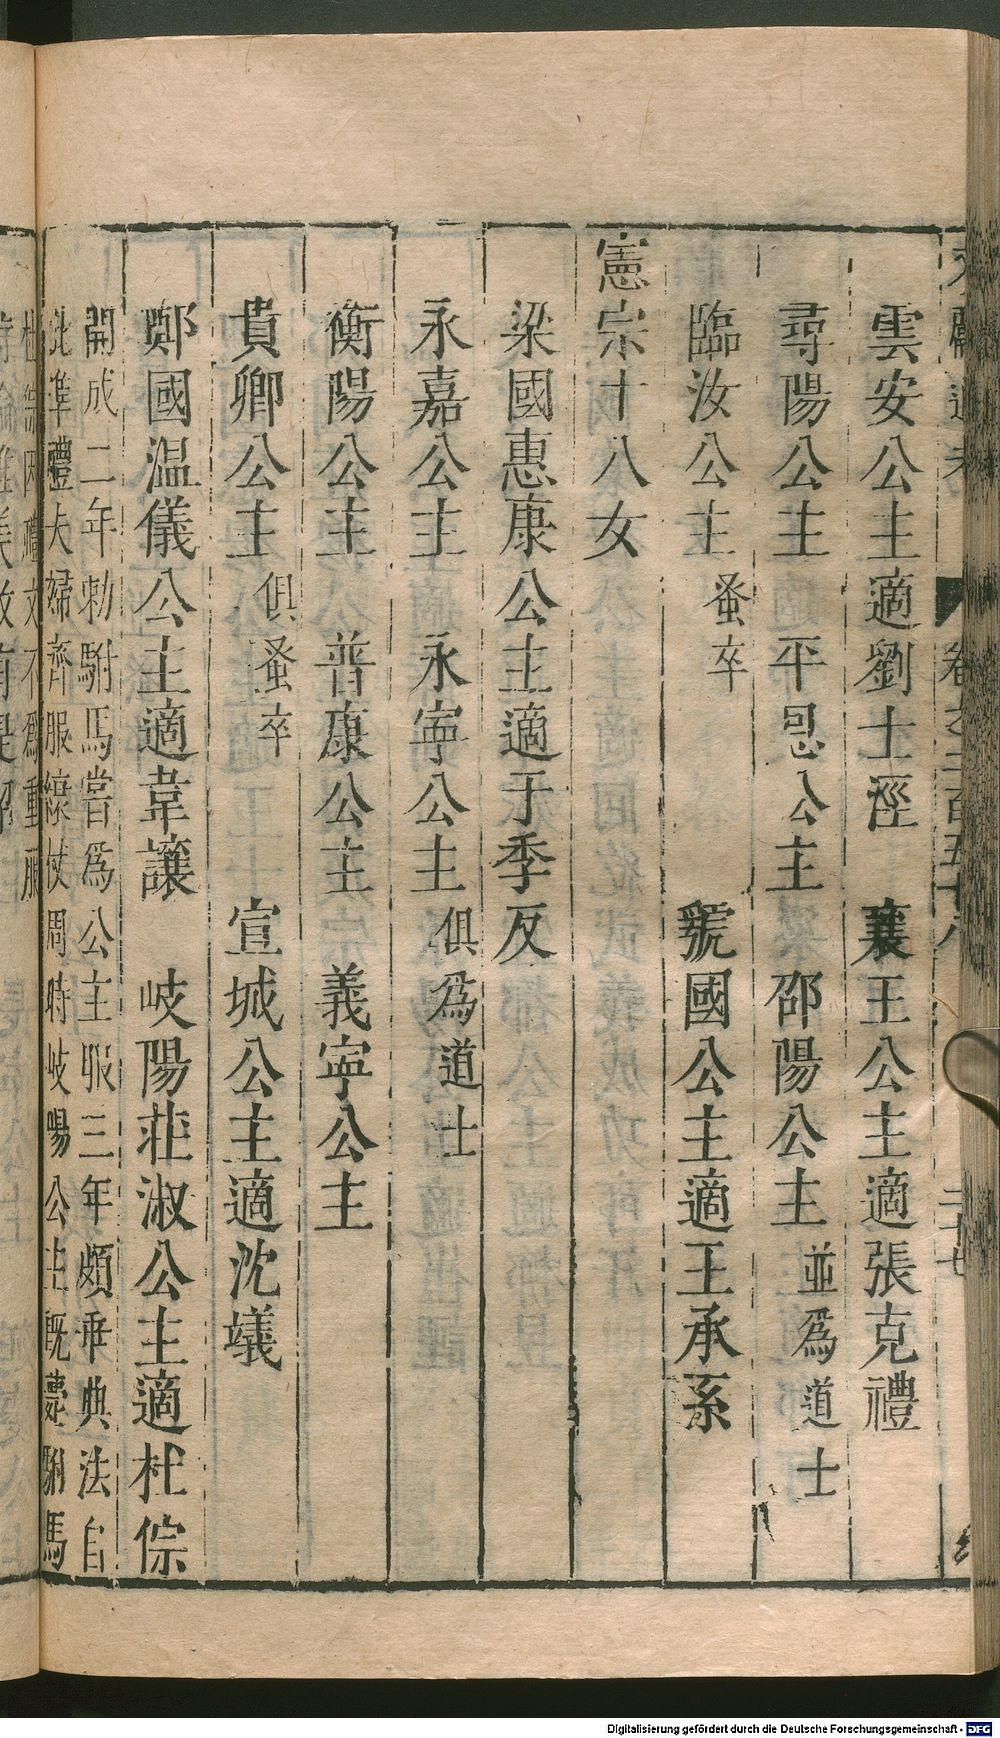 雲安公主適劉士涇　襄王公主適張克禮
尋陽公主　平恩公主　邵陽公主並爲道士
臨汝公主蚤卒　虢國公主適王承系
憲宗十八女
梁國惠康公主適于季友
永嘉公主　永寧公主俱爲道士
衡陽公主　普康公主　義寧公主
貴卿公主俱蚤卒　宣城公主適沈䥴
鄭國温儀公主適韋讓　岐陽莊淑公主適杜悰
開成二年勅駙馬嘗爲公主服三年頗乖典法自
此準禮夫婦齊服縗杖周時岐陽公主旣薨駙馬
Digitalisierung gefördert durch die Deutsche Forschungsgemeinschaft - DFG